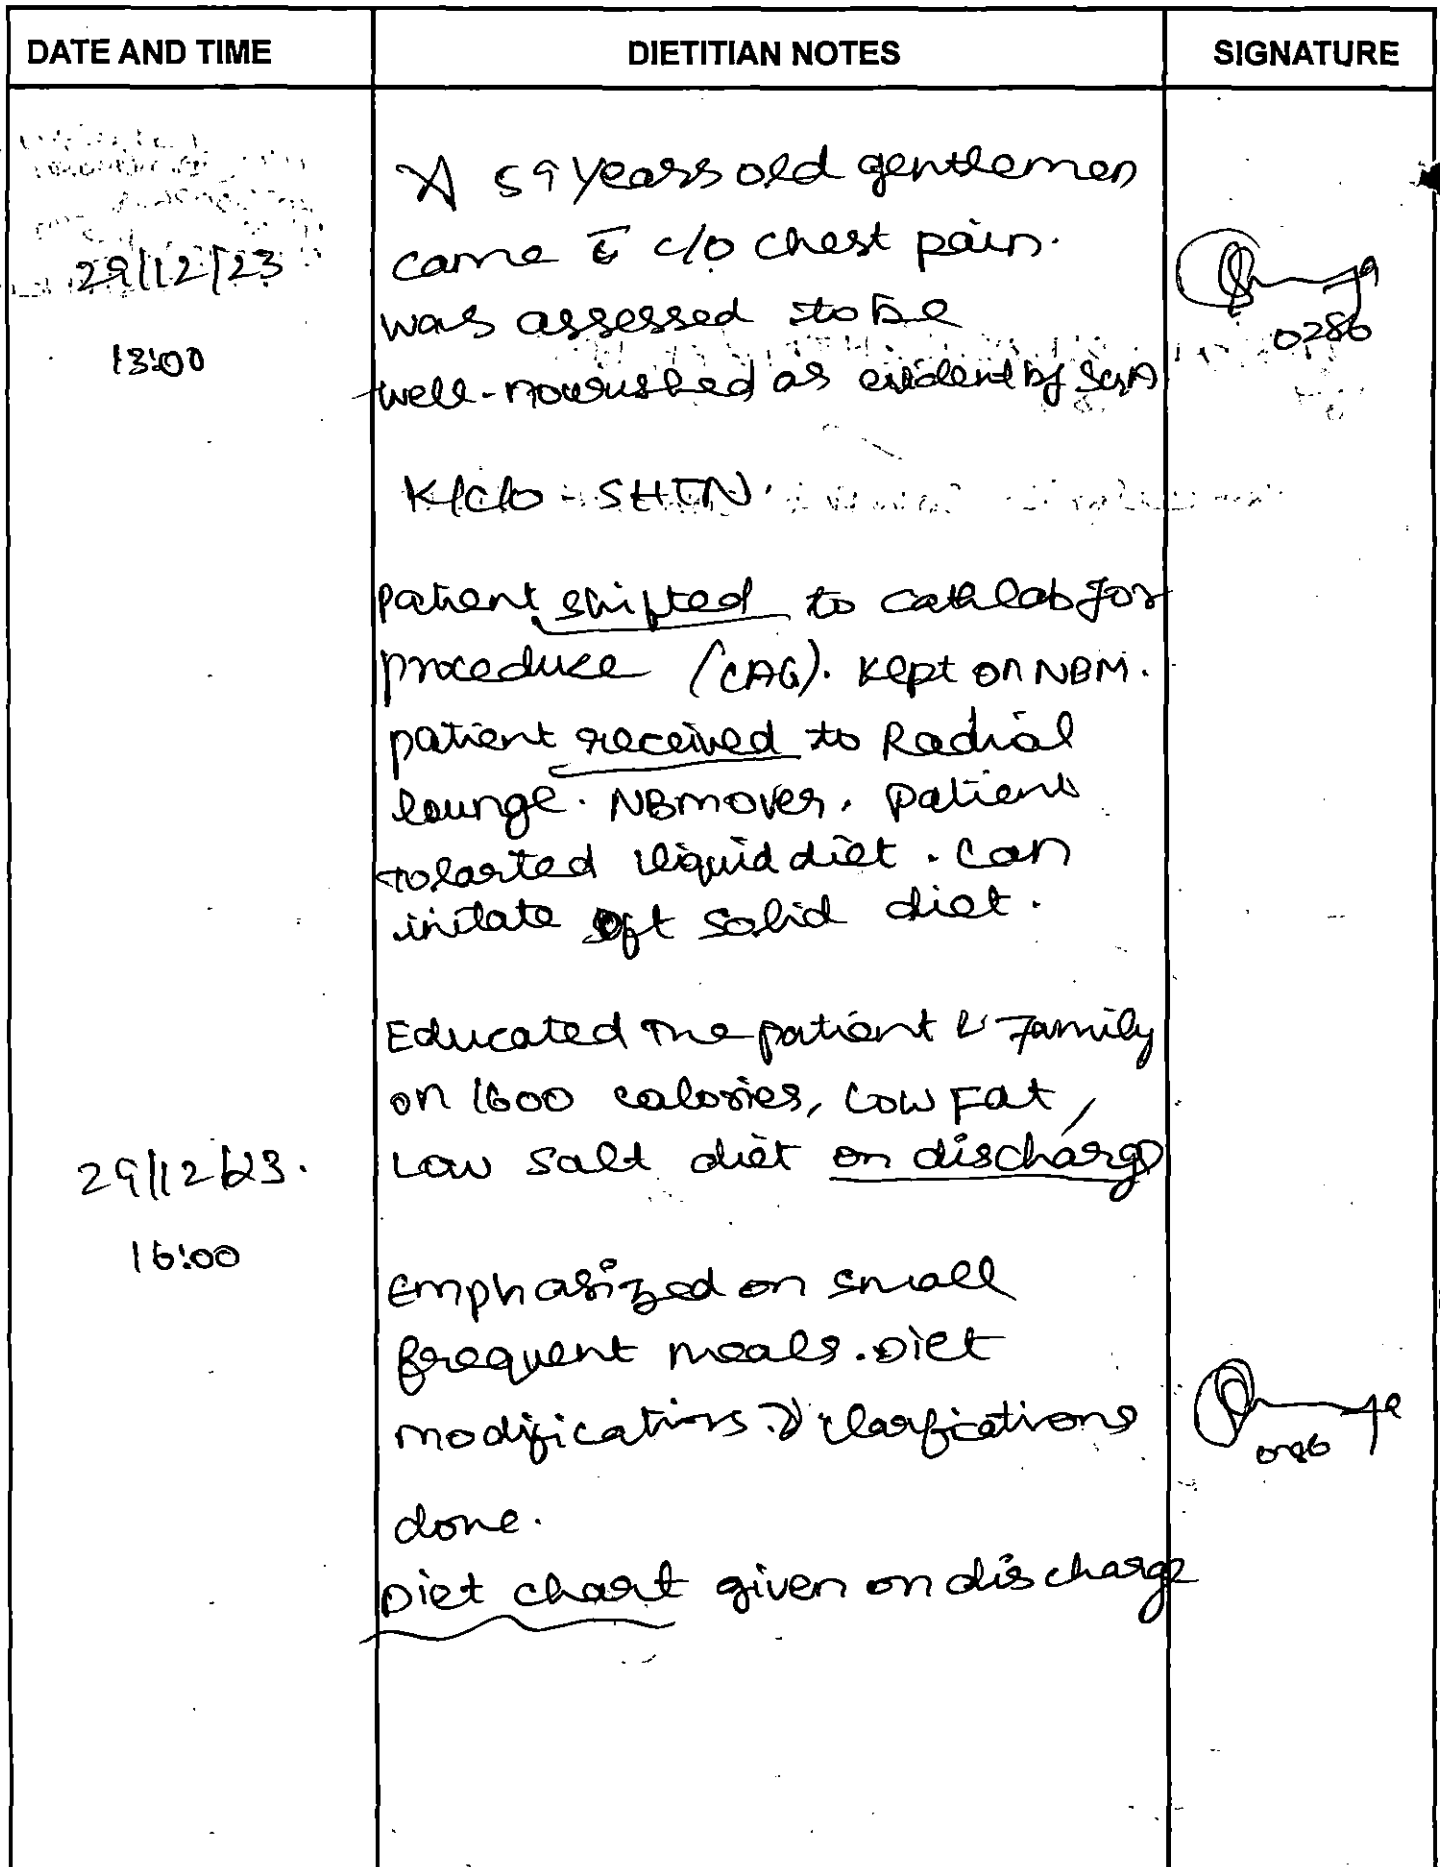 DATE AND TIME DIETITIAN NOTES SIGNATURE
A 59 years old gentlemen
came c̄ c/o chest pain.
29/12/23
was assessed to be
0286
13:00
well-nourished as evident by SGA
K/c/o - SHTN.
patient shifted to cathlab for
procedure (CAG). Kept on NBM.
patient received to Radial
lounge. NBM over. Patient
tolarted liquid diet. Can
initate soft solid diet.
Educated the patient & Family
on 1600 calories, Low Fat,
29/12/23. Low Salt diet on discharge
16:00
Emphasized on small
frequent meals. Diet
modifications & clarfications
0286
done.
Diet chart given on discharge